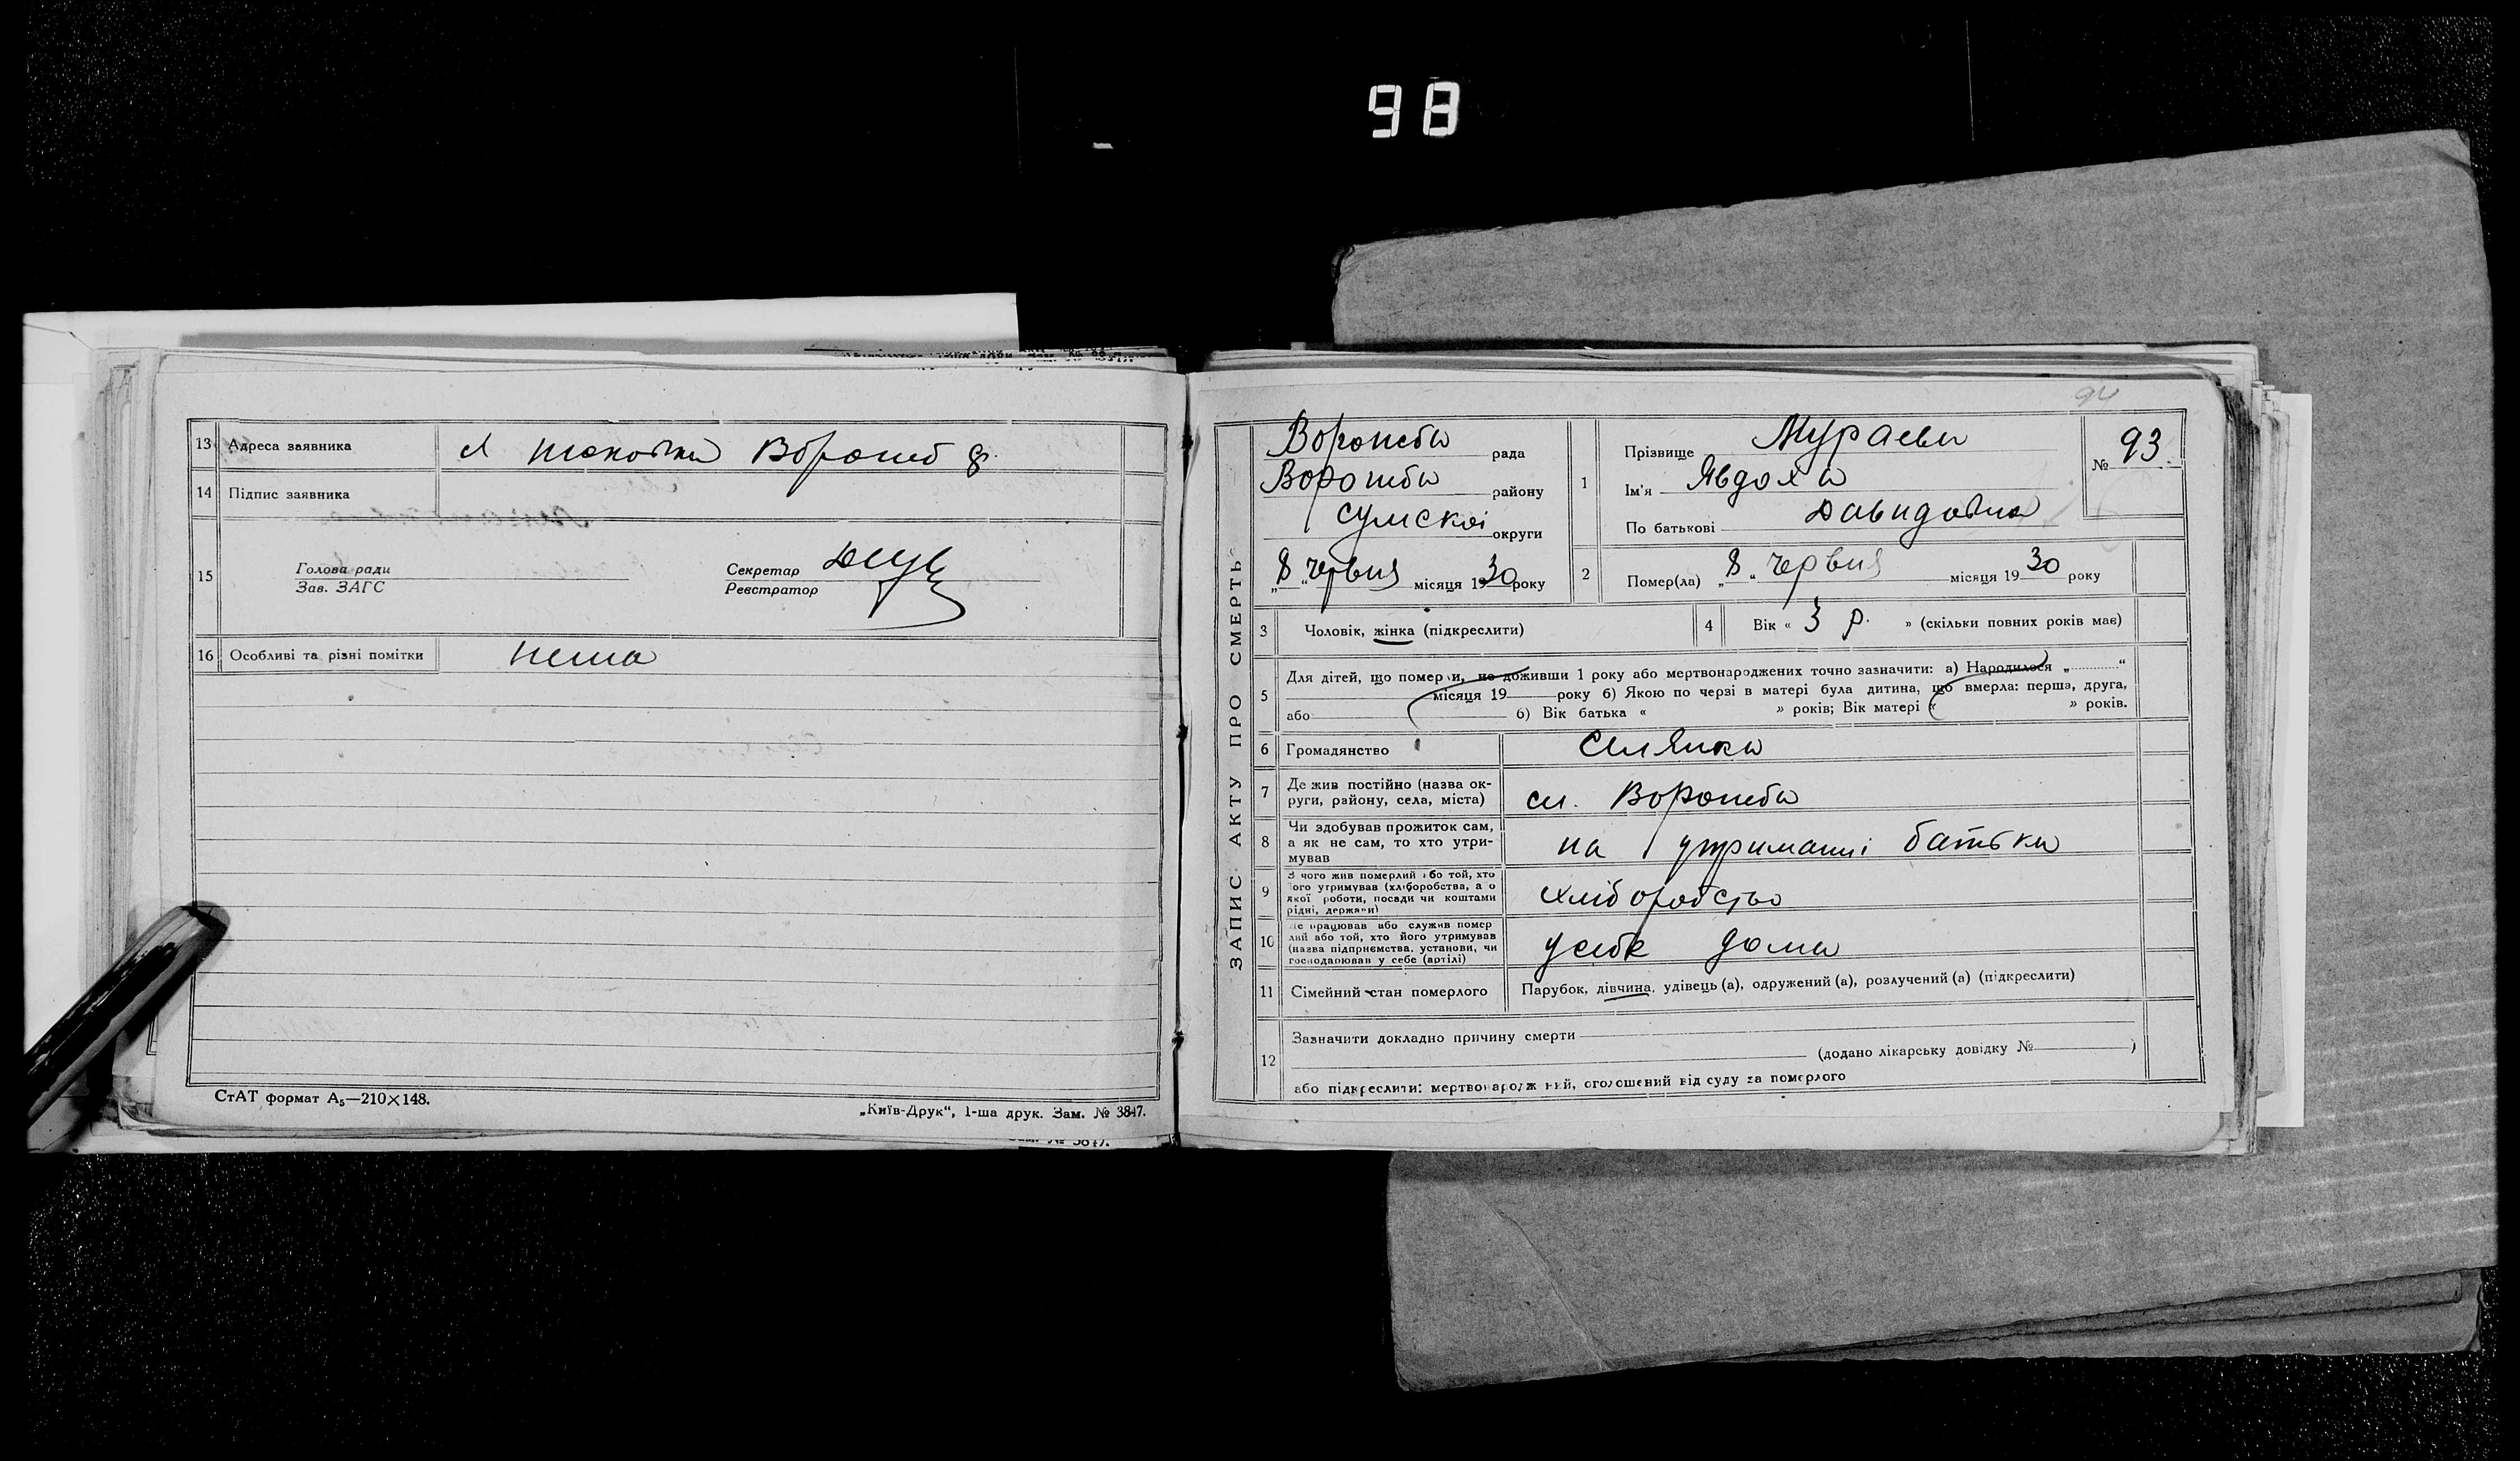 98
13 Адреса заявника
14 Підпис заявника
15 Голова ради
Зав. ЗАГС
Секретар
Реєстратор
16 Особливі та різні помітки нема
СтАТ формат А₅—210×148.
„Київ-Друк“, 1-ша друк. Зам. № 3847.
94
ЗАПИС АКТУ ПРО СМЕРТЬ
Ворожба рада
Ворожба району
Сумскої округи
„8“ червня місяця 1930 року
1 Прізвище Мураева
Ім'я Явдоха
По батькові Давидовна
№ 93.
2 Помер(ла) „8“ червня місяця 1930 року
3 Чоловік, жінка (підкреслити)
4 Вік « 3 р. » (скільки повних років має)
5 Для дітей, що померли, не доживши 1 року або мертвонароджених точно зазначити: а) Народилося „ “
місяця 19 року б) Якою по черзі в матері була дитина, що вмерла: перша, друга,
або б) Вік батька « » років; Вік матері « » років.
6 Громадянство Селянка
7 Де жив постійно (назва ок-
руги, району, села, міста) сл. Ворожба
8 Чи здобував прожиток сам,
а як не сам, то хто утри-
мував на утриманні батька
9 З чого жив померлий або той, хто
його утримував (хліборобства, а о
якої роботи, посади чи коштами
рідні, держави) хліборобство
10 Де працював або служив помер
лий або той, хто його утримував
(назва підприємства, установи, чи
господарював у себе (артілі) у себе дома
11 Сімейний стан померлого Парубок, дівчина, удівець (а), одружений (а), розлучений (а) (підкреслити)
12 Зазначити докладно причину смерти
(додано лікарську довідку № )
або підкреслити: мертвонароджений, оголошений від суду за померлого